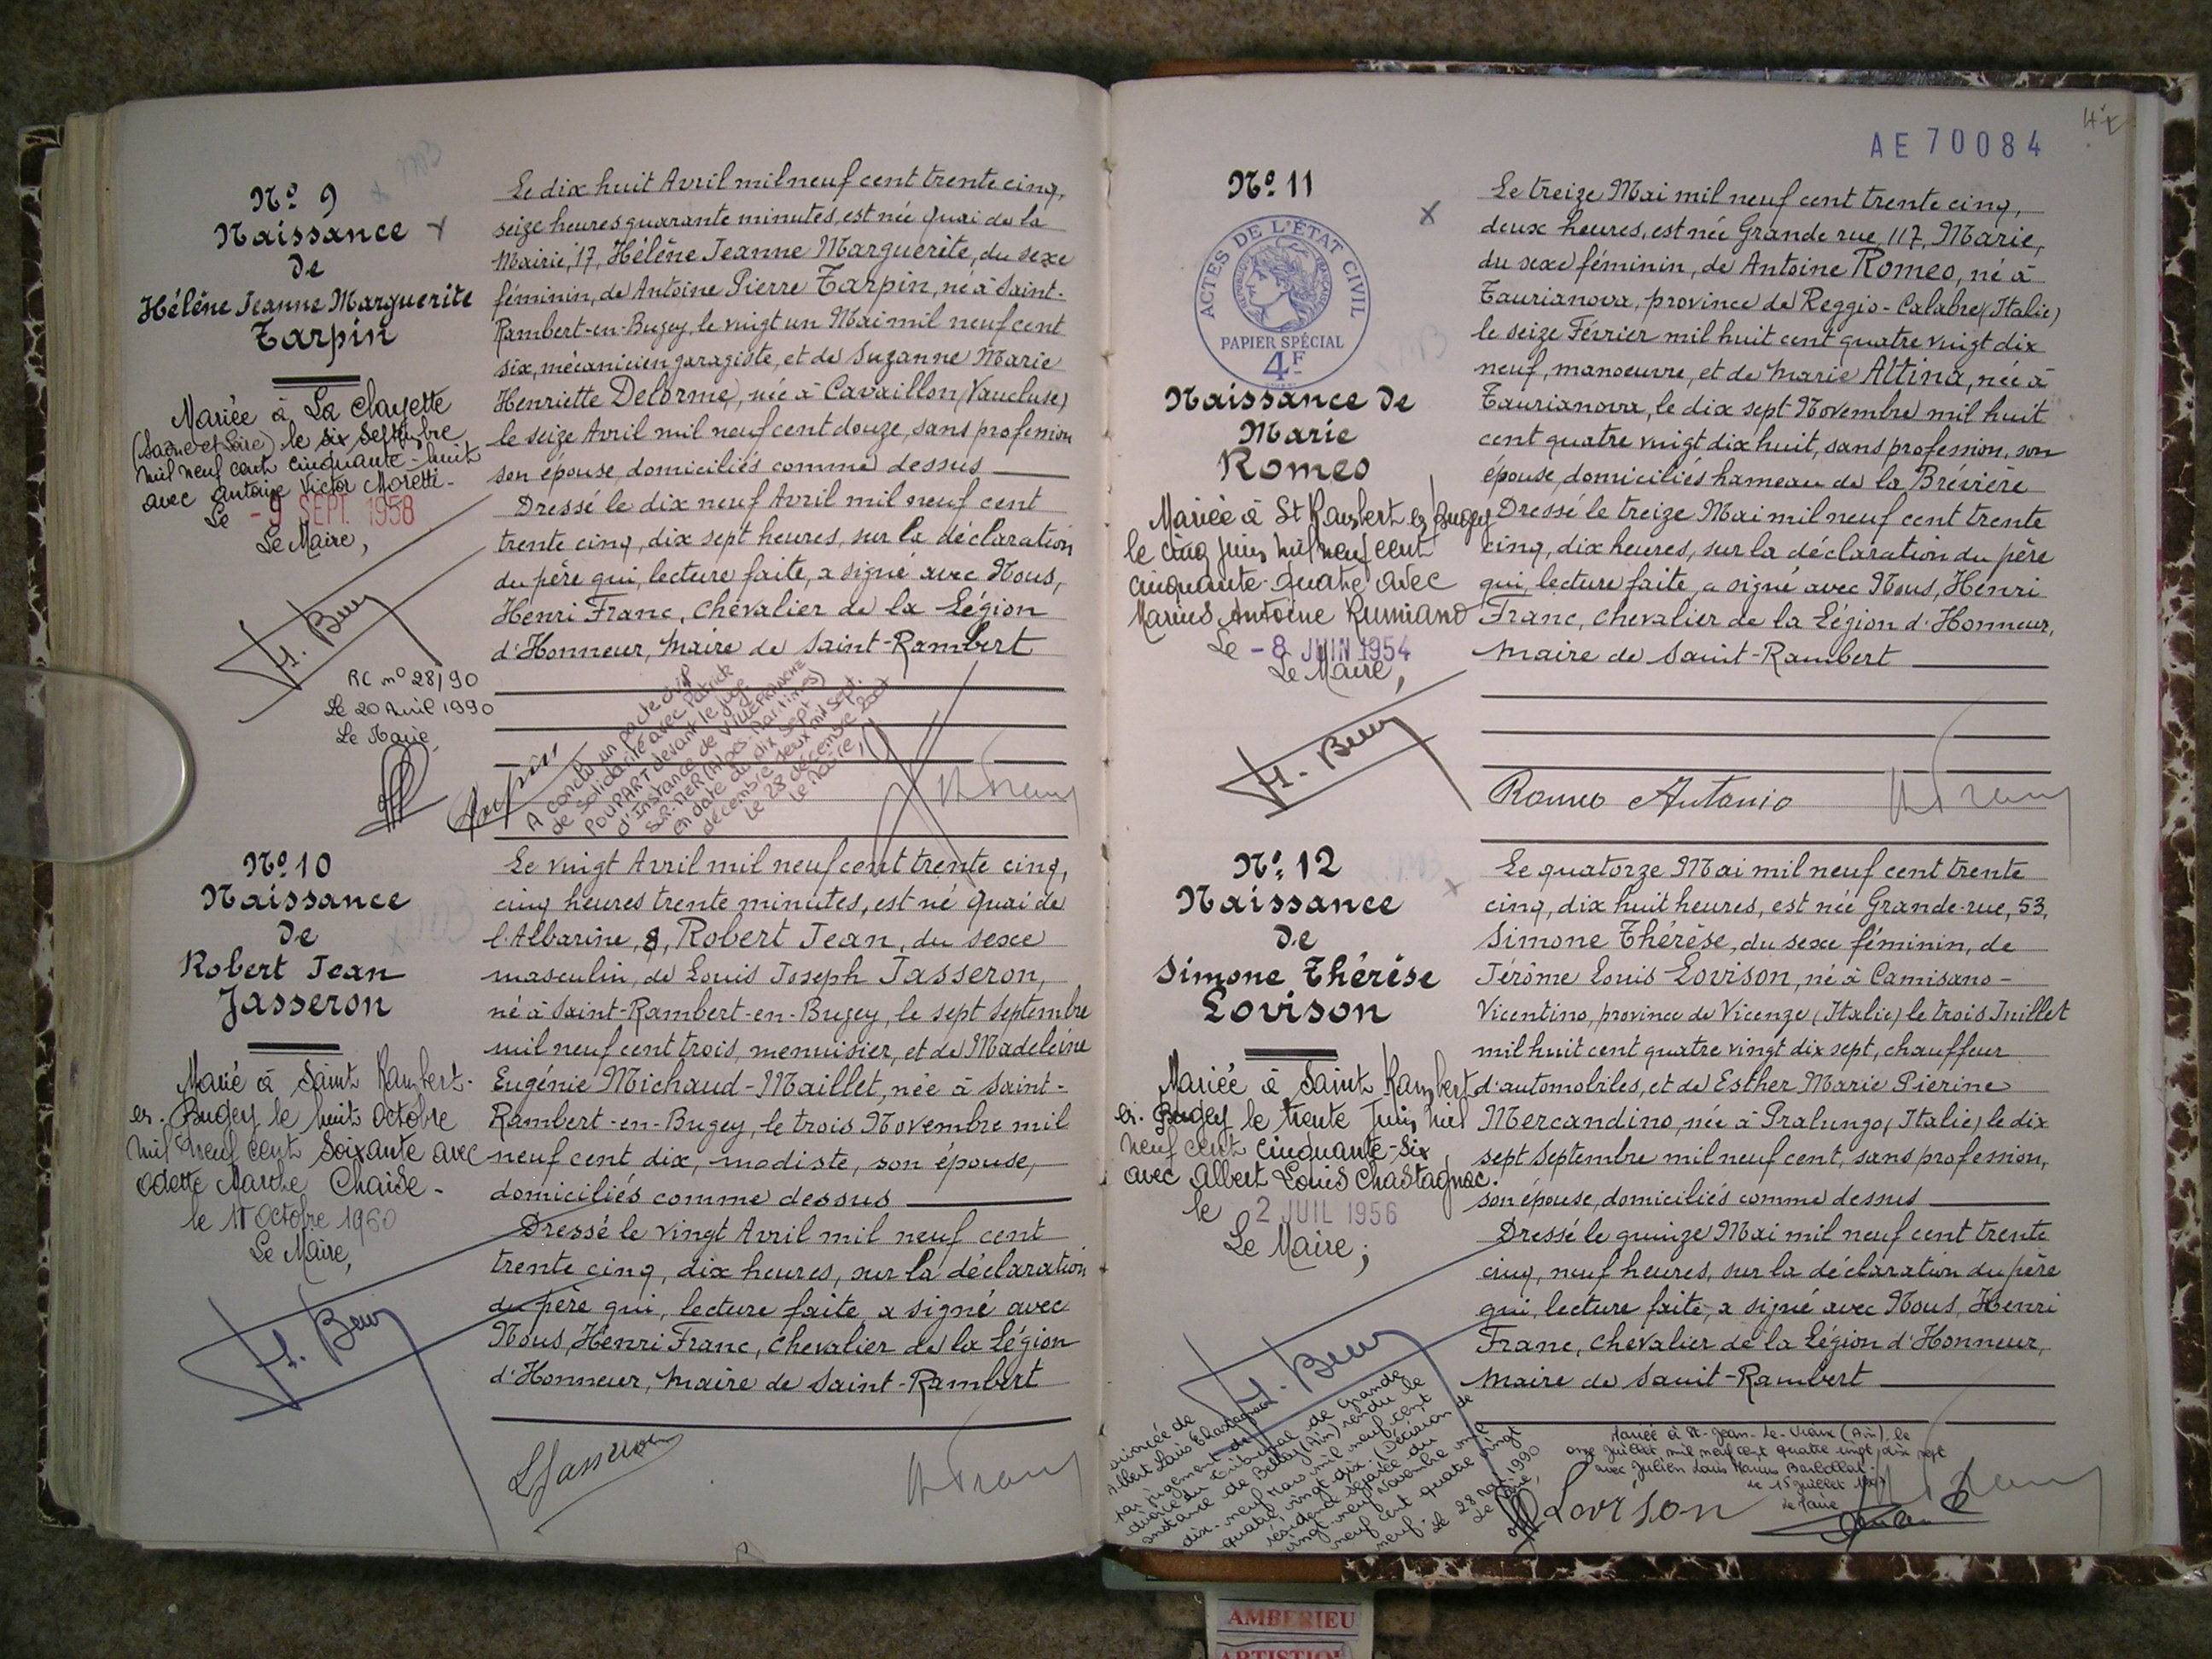 Nº 9
Naissance
de
Hélène Jeanne Marguerite
Tarpin
Mariée à La Clayette
(Saône et Loire) le six septembre
mil neuf cent cinquante-huit
avec Antoine Victor Moretti-
Le - 9 SEPT. 1958
Le Maire,
H. Beny
RC nº 28/90
Le 20 Avril 1990
Le Maire
Le dix huit Avril mil neuf cent trente cinq,
seize heures quarante minutes, est née Quai de la
Mairie, 17, Hélène Jeanne Marguerite, du sexe
féminin, de Antoine Pierre Tarpin, né à Saint-
Rambert-en-Bugey, le vingt un Mai mil neuf cent
six, mécanicien garagiste, et de Suzanne Marie
Henriette Delorme, née à Cavaillon (Vaucluse)
le seize Avril mil neuf cent douze, sans profession
son épouse, domiciliés comme dessus
Dressé le dix neuf Avril mil neuf cent
trente cinq, dix sept heures, sur la déclaration
du père qui, lecture faite, a signé avec Nous,
Henri Franc, Chevalier de la Légion
d'Honneur, Maire de Saint-Rambert
A conclu un pacte civil
de solidarité avec Patrick
POUPART devant le juge
d'Instance de VILLEFRANCHE
SUR MER (Alpes-Maritimes)
en date du dix sept
décembre deux mil sept.
Le 28 décembre 2007
Le Maire,
Tarpin
H Franc
Nº 10
Naissance
de
Robert Jean
Jasseron
Marié à Saint Rambert-
en-Bugey le huit Octobre
mil neuf cent soixante avec
Odette Marthe Chaise-
le 11 Octobre 1960
Le Maire,
Le vingt Avril mil neuf cent trente cinq,
cinq heures trente minutes, est né Quai de
l'Albarine, 8, Robert Jean, du sexe
masculin, de Louis Joseph Jasseron,
né à Saint-Rambert-en-Bugey, le sept Septembre
mil neuf cent trois, menuisier, et de Madeleine
Eugénie Michaud-Maillet, née à Saint-
Rambert-en-Bugey, le trois Novembre mil
neuf cent dix, modiste, son épouse,
domiciliés comme dessus
Dressé le vingt Avril mil neuf cent
trente cinq, dix heures, sur la déclaration
du père qui, lecture faite, a signé avec
Nous, Henri Franc, Chevalier de la Légion
d'Honneur, Maire de Saint-Rambert
L Jasseron
H Franc
AE 70084
Nº 11
ACTES DE L'ÉTAT CIVIL
RÉPUBLIQUE FRANÇAISE
PAPIER SPÉCIAL
4F
Naissance de
Marie
Romeo
Mariée à St Rambert en Bugey
le cinq juin mil neuf cent
cinquante-quatre avec
Marius Antoine Rumiano
Le - 8 JUIN 1954
Le Maire,
Le treize Mai mil neuf cent trente cinq,
deux heures, est née Grande rue, 117, Marie,
du sexe féminin, de Antoine Romeo, né à
Taurianova, province de Reggio-Calabre (Italie)
le seize Février mil huit cent quatre vingt dix
neuf, manoeuvre, et de Marie Altina, née à
Taurianova, le dix sept Novembre mil huit
cent quatre vingt dix huit, sans profession, son
épouse, domiciliés hameau de la Brévière
Dressé le treize Mai mil neuf cent trente
cinq, dix heures, sur la déclaration du père
qui, lecture faite, a signé avec Nous, Henri
Franc, Chevalier de la Légion d'Honneur,
Maire de Saint-Rambert
Romeo Antonio
H Franc
Nº 12
Naissance
de
Simone Thérèse
Lovison
Mariée à Saint Rambert
en-Bugey le trente Juin mil
neuf cent cinquante-six
avec Albert Louis Chastagnac.
le 2 JUIL 1956
Le Maire;
Le quatorze Mai mil neuf cent trente
cinq, dix huit heures, est née Grande-rue, 53,
Simone Thérèse, du sexe féminin, de
Jérôme Louis Lovison, né à Camisano-
Vicentino, province de Vicenze (Italie) le trois Juillet
mil huit cent quatre vingt dix sept, chauffeur
d'automobiles, et de Esther Marie Pierine
Mercandino, née à Pralungo (Italie) le dix
sept Septembre mil neuf cent, sans profession,
son épouse, domiciliés comme dessus
Dressé le quinze Mai mil neuf cent trente
cinq, neuf heures, sur la déclaration du père
qui, lecture faite, a signé avec Nous, Henri
Franc, Chevalier de la Légion d'Honneur,
Maire de Saint-Rambert
Divorcée de
Albert Louis Chastagnac
par jugement de
divorce du Tribunal de Grande
Instance de Belley (Ain) rendu le
dix-neuf Mars mil neuf cent
quatre vingt dix. (Décision de
résidence séparée du
vingt-neuf Novembre mil
neuf cent quatre vingt
neuf. Le 28 1990
Le Maire,
Mariée à St-Jean-le-Vieux (Ain), le
onze Juillet mil neuf cent quatre vingt dix sept
avec Julien Louis Marius
Le 15 juillet 1997
le Maire
Lovison
AMBERIEU